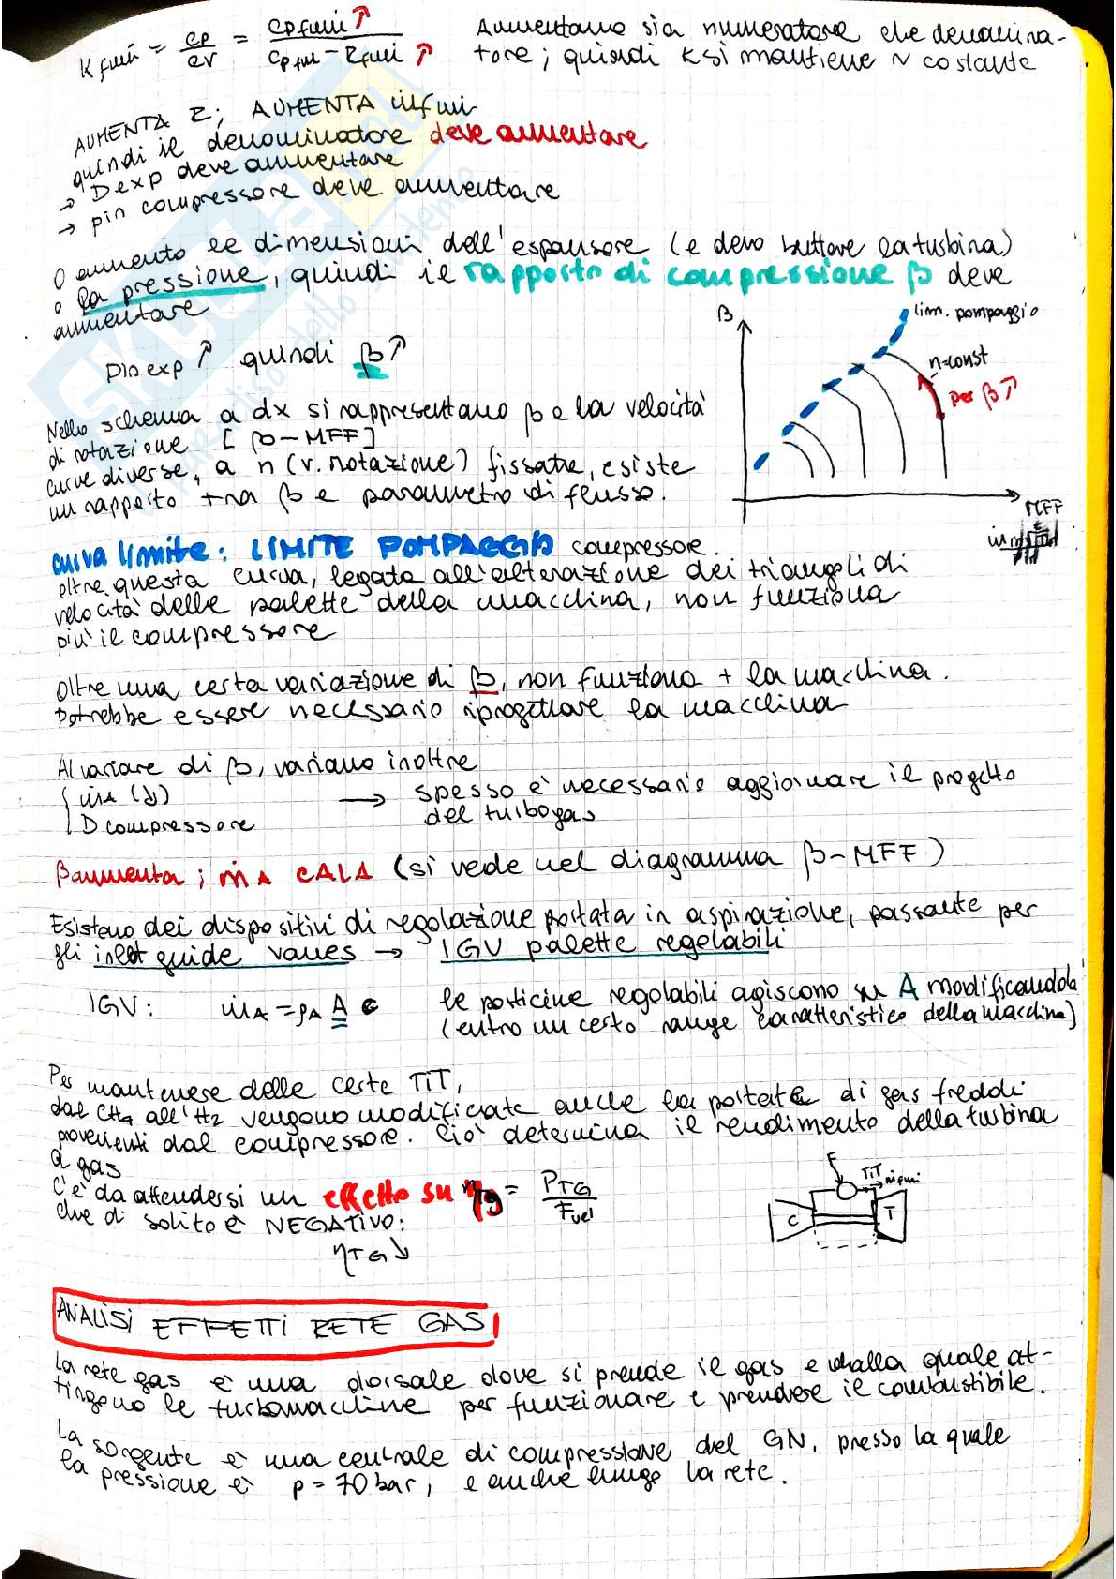 K fumi = cp/cv = cp fumi ↑ / cp fumi - R fumi ↑ Aumentano sia numeratore che denomina-
tore; quindi K si mantiene ~ costante
AUMENTA R; AUMENTA ṁ fumi
quindi il denominatore deve aumentare
→ D exp deve aumentare
→ pin compressore deve aumentare
o aumento le dimensioni dell'espansore (e devo buttare la turbina)
o la pressione, quindi il rapporto di compressione β deve
aumentare
pin exp ↑ quindi β ↑
β
lim. pompaggio
n=const
per β ↑
MFF
Nello schema a dx si rappresentano β e la velocità
di rotazione [β-MFF]
curve diverse, a n (v. rotazione) fissate, esiste
un rapporto tra β e parametro di flusso.
curva limite: LIMITE POMPAGGIO compressore.
oltre questa curva, legata all'alterazione dei triangoli di
velocità delle palette della macchina, non funziona
più il compressore
Oltre una certa variazione di β, non funziona + la macchina.
Potrebbe essere necessario riprogettare la macchina
Al variare di β, variano inoltre
{ ṁA (↓)
D compressore
→ spesso è necessario aggiornare il progetto
del turbogas
β aumenta; ṁA CALA (si vede nel diagramma β-MFF)
Esistono dei dispositivi di regolazione portata in aspirazione, passante per
gli inlet guide vanes → IGV palette regolabili
IGV: ṁA = ρA A c le porticine regolabili agiscono su A modificandola
(entro un certo range caratteristico della macchina)
Per mantenere delle certe TIT,
dal CH4 all'H2 vengono modificate anche la portata di gas freddi
provenienti dal compressore. Ciò determina il rendimento della turbina
a gas
C'è da attendersi un effetto su ηg = PTG / Fuel
che di solito è NEGATIVO:
ηTG ↓
F
TIT
C
T
ANALISI EFFETTI RETE GAS
La rete gas è una dorsale dove si prende il gas e dalla quale at-
tingono le turbomacchine per funzionare e prendere il combustibile.
La sorgente è una centrale di compressione del GN, presso la quale
la pressione è p = 70 bar, e anche lungo la rete.